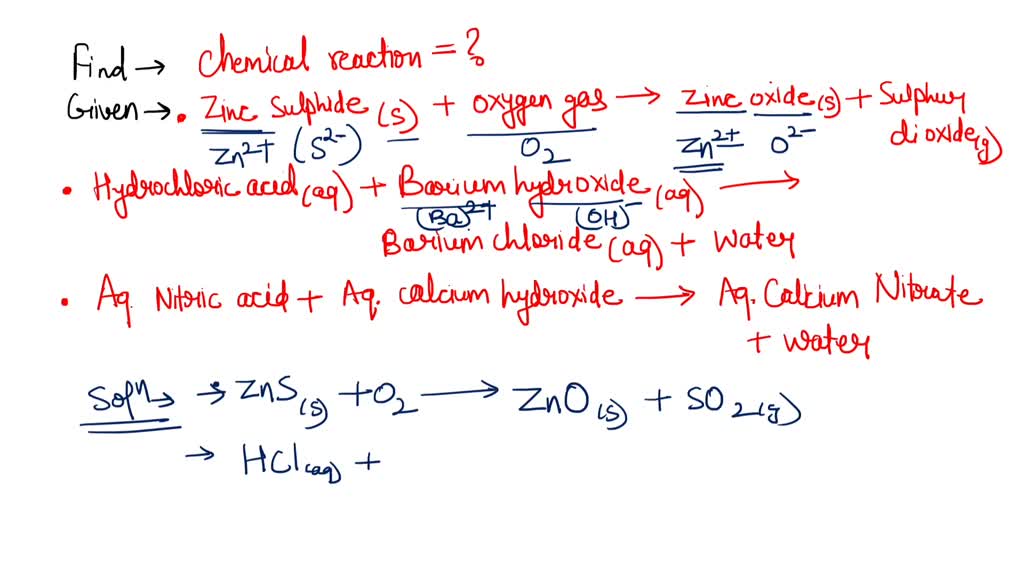 Find → Chemical reaction = ?
Given → • Zinc Sulphide (s) + Oxygen gas → Zinc oxide(s) + Sulphur
Zn2+ (S2-) O2 Zn2+ O2- dioxide(g)
• Hydrochloric acid(aq) + Barium hydroxide (aq) →
(Ba)2+ (OH)-
Barium chloride (aq) + Water
• Aq. Nitric acid + Aq. calcium hydroxide → Aq. Calcium Nitrate
+ water
Soln → → ZnS(s) + O2 → ZnO(s) + SO2(g)
→ HCl(aq) +